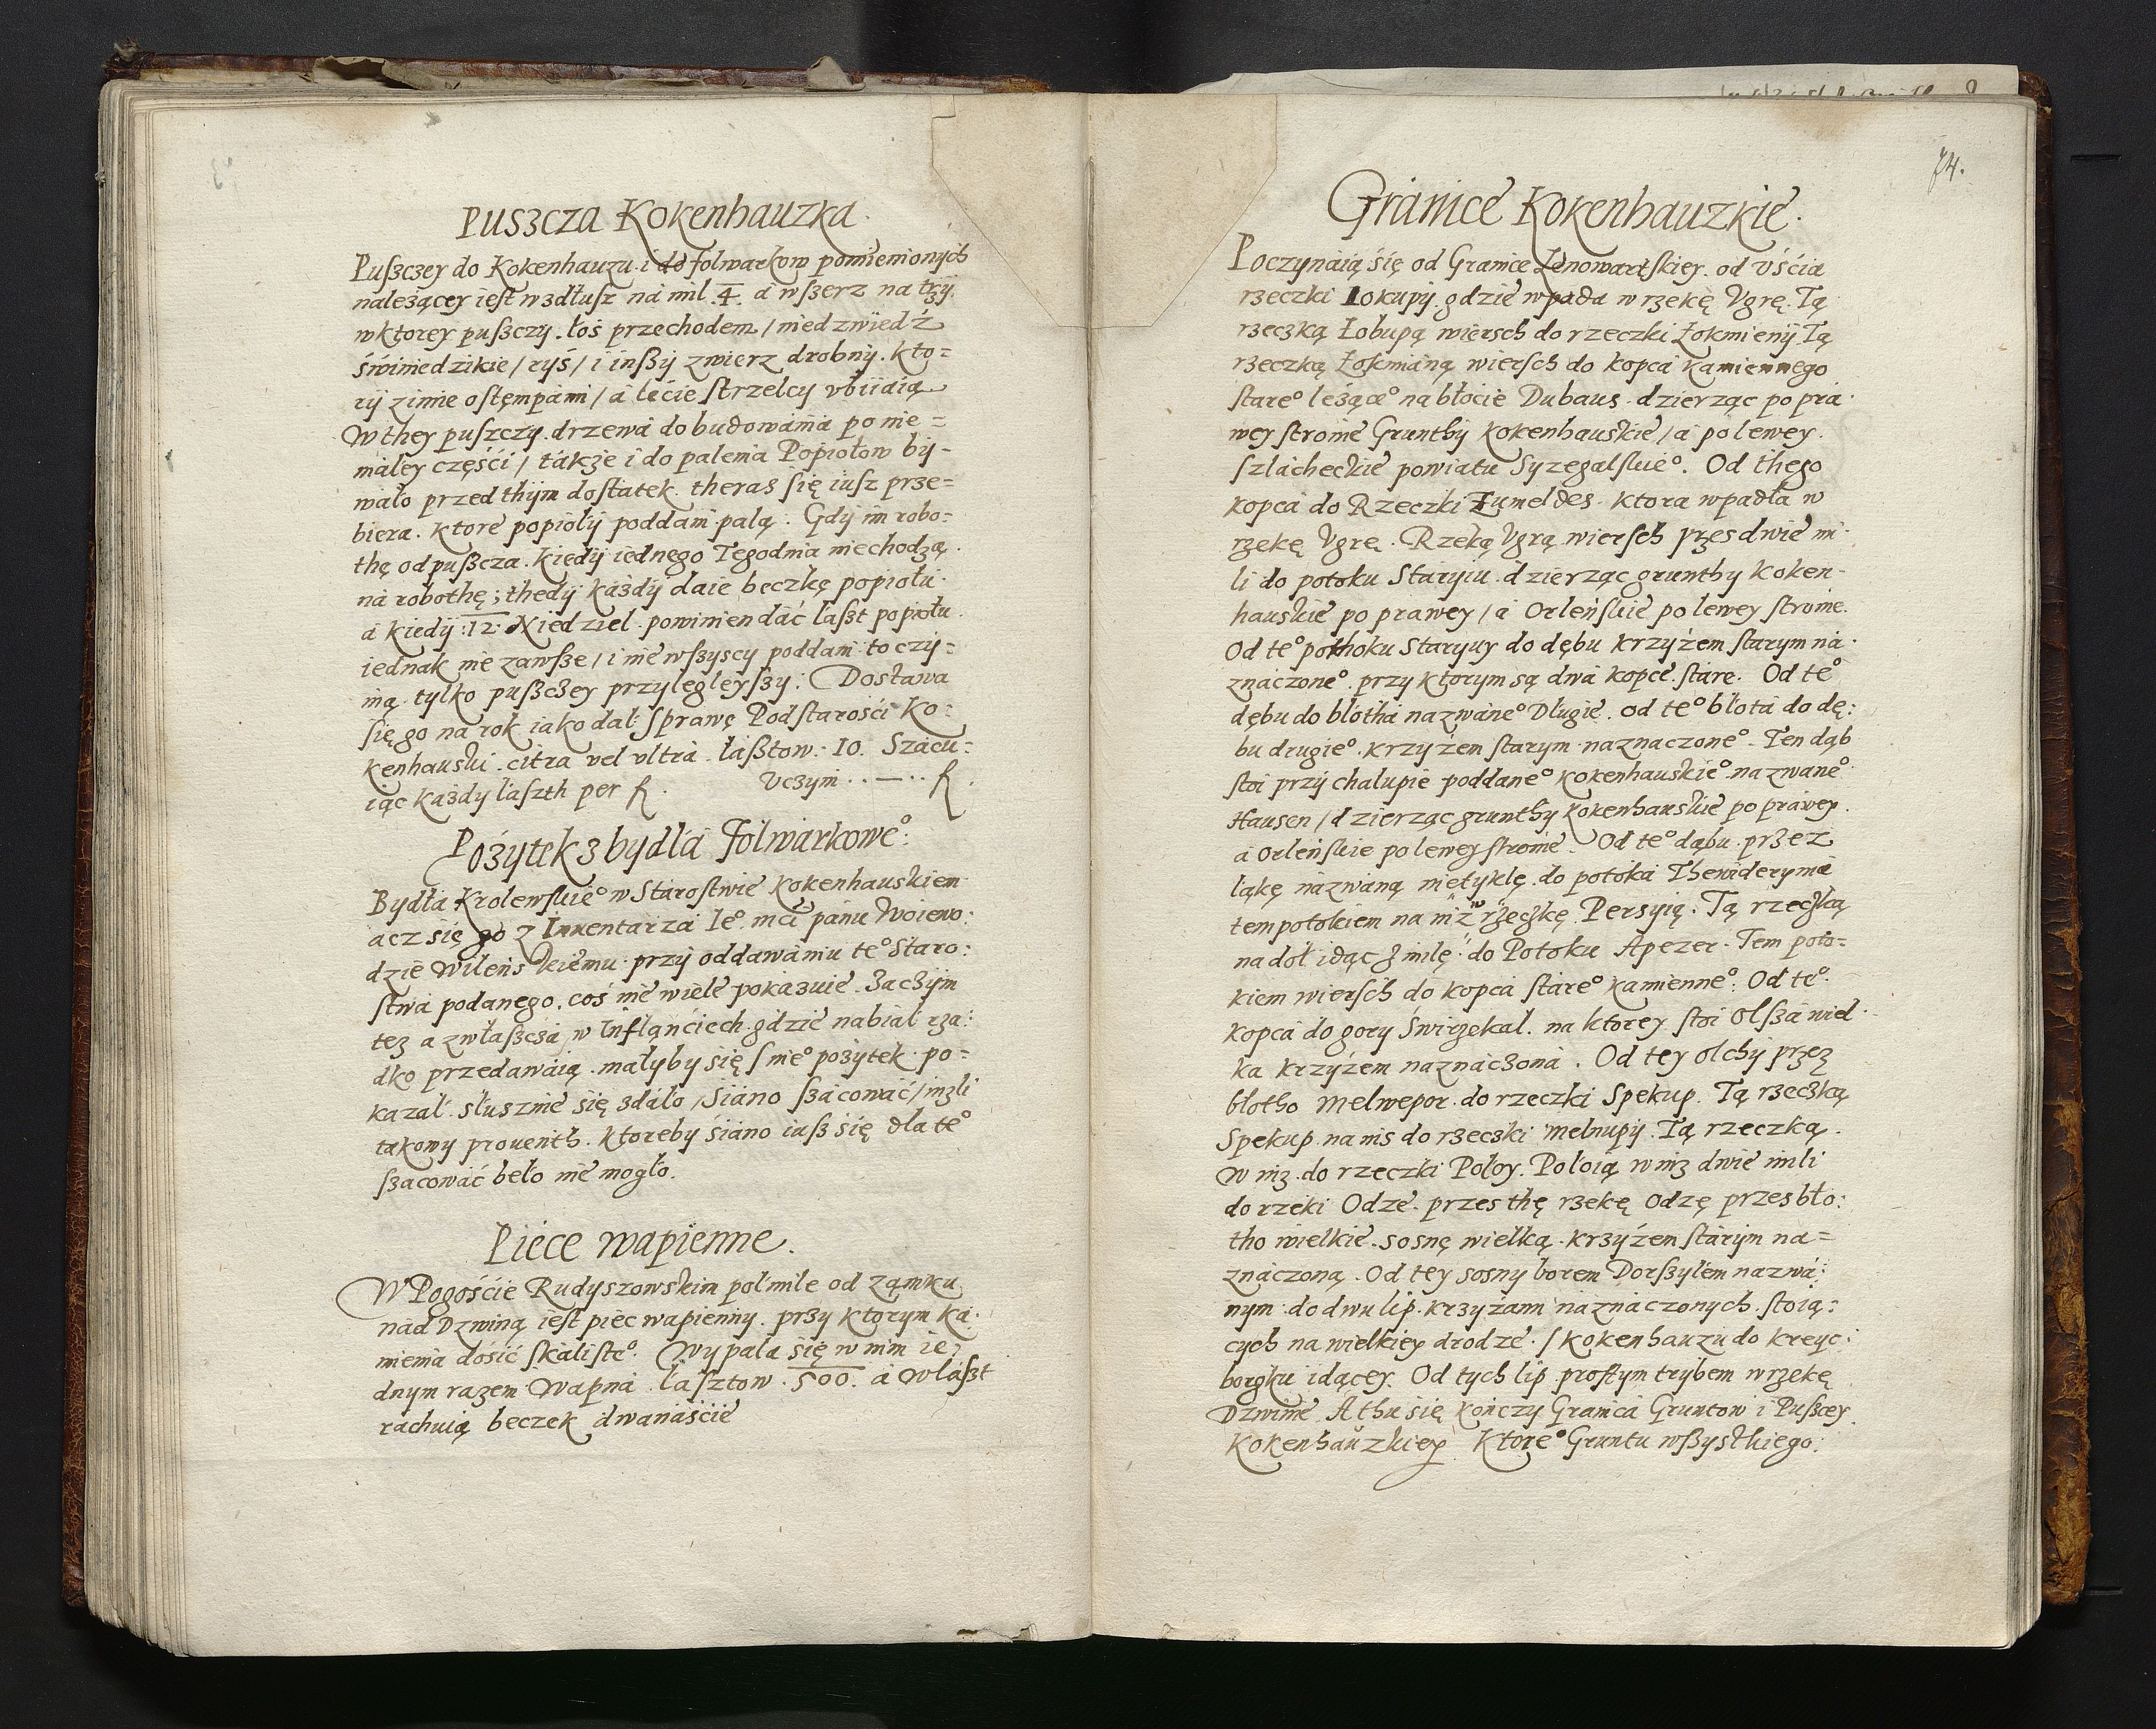 Puszcza Kokenhauzka.
Puszczey do Kokenhauzu i do folwarkow pomienionych
należącey iest wzdłusz na mil .4. a wszerz na trzy.
wktorey puszczy. łoś przechodem / niedzwiedź
świniedzikie / ryś / i inszy zwierz drobny. kto=
rÿ zimie ostęmpami / a lecie strzelcy vbiiaią
Wthey puszczy. drzewa do budowania po nie=
małey części / także i do palenia Popiołow by-
wało przed thÿm dostatek. theras się iusz prze=
biera. ktore popioły poddani palą. Gdÿ im robo=
thę odpuszcza. kiedÿ iednego Tegodnia niechodzą.
na robothę; thedÿ każdÿ daie beczkę popiołu.
a kiedÿ :12. Niedziel powinien dać laszt popiołu.
iednak nie zawsze / i nie wszyscy poddani to czy=
nią. tylko puszczey przylegleyszy: Dostawa
się go na rok iako dał sprawę Podstarości Ko=
kenhauski. citra vel vltra. łasztow. 10. Szacu=
iąc każdy laszth per f. Vczym ..—.. f.
Pożytek z bydła folwarkoweº:
Bydła Krolewskieº w Starostwie Kokenhauskiem
acz się go z Inuentarza Ieº mci panu Woiewo:
dzie Wilenskiemu przy oddawaniu teº Staro:
stwa podanego. coś nie wiele pokazuie. Zaczÿm
tez a zwłaszcza w Inflanciech gdzie nabiał rza:
dko przedawaią. małyby się snieº pożytek po=
kazał. słusznie się zdało / siano szacować / inżli
takowy prouenth. ktoreby siano iusz się dla teº
szacować beło nie mogło.
Piece wapienne.
W Pogoście Rudyszowskim pół mile od zamku
nad Dzwiną iest piec wapienny. przy ktorym ka:
mienia dosić skalisteº. Wypala się w nim ie:
dnym razem wapna łasztow .500. a właszt
rachuią beczek dwanaście
74.
Granice Kokenhauzkie.
Poczynaią się od Granice Lenowartskiey. od vścia
rzeczki Lokupÿ. gdzie wpada w rzekę Vgrę. Tą
rzeczką Łobupą wiersch do rzeczki Łokmienÿ Tą
rzeczką Łokmianą wiersch do kopca kamiennego
stareº leżąceº na błocie Dubaus. dzierząc po pra-
wey stronie Grunthy kokenhauskie / a po lewey.
szlacheckie powiatu Syzegalskieº. Od thego
kopca do Rzeczki Łumeldes. ktora wpadła w
rzekę Vgrę. Rzeką Vgrą wiersch przes dwie mi-
li do potoku Staryiu. dzierząc grunthy koken-
hauskie po prawey / a Orleńskie po lewey stronie.
Od teº pothoku Staryuy do dębu krzyżem starym na-
znaczoneº. przy ktorym są dwa kopce stare. Od teº
dębu do błotha nazwaneº Długie. od teº błota do dę:
bu drugieº. krzyżem starym naznaczoneº. Ten dąb
stoi przy chalupie poddaneº kokenhauskieº nazwaneº
Hausen / dzierząc grunthy kokenhauskie po prawey.
a Orleńskie po lewey stronie. Od teº dąbu przez
łąkę nazwaną nietyklę. do potoka Thewideryma
tem potokiem na niz w rzeczkę Persyią. Tą rzeczką
na doł idąc z milę. do Potoku Apezer. Tem poto=
kiem wiersch do kopca stareº kamienneº. Od teº
kopca do gory Swirzekal. na ktorey stoi Olsza wiel-
ka krzyżem naznaczona. Od tey olchÿ przez
błotho Melwepor. do rzeczki Spekup. Tą rzeczką
Spekup. na nis do rzeczki Melnupÿ. Tą rzeczką.
W niz. do rzeczki Połoy. Połoią w niz dwie mili
do rzeki Odze. przes thę rzekę Odzę przes bło:
tho wielkie. sosnę wielką. krzyżem starÿm na=
znaczoną. Od tey sosny borem Dorszylem nazwa:
nym do dwu lip. krzyżami naznaczonych. stoią:
cych na wielkiey drodze. s kokenhauzu do kreyc:
borgku idącey. Od tych lip prostym trybem w rzekę
Dzwinę. A thu się kończy Granica Gruntow i Puszcey
Kokenhauzkiey. Ktoreº Gruntu wszystkiego: